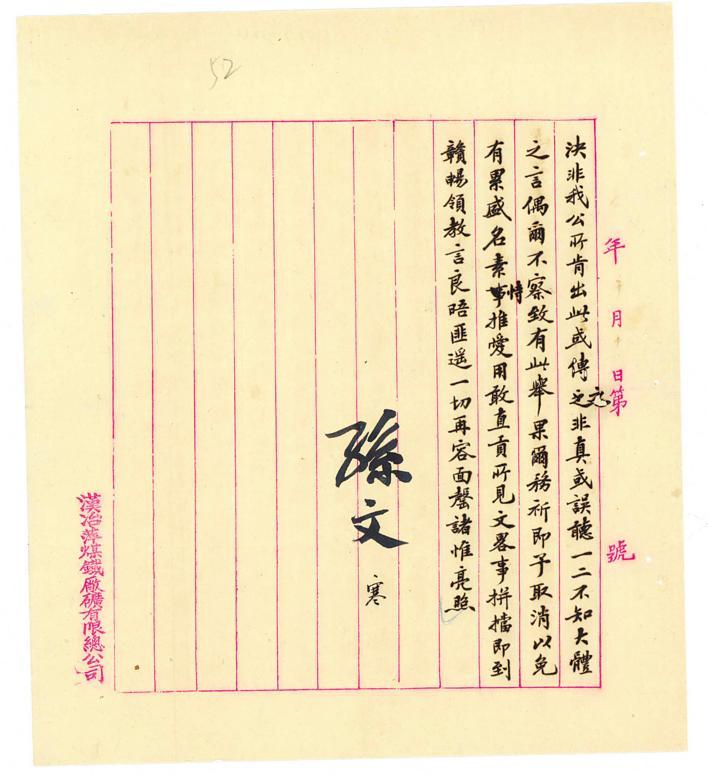 52
年 月 日第 號
決非我公所肯出此或傳文非真或誤聽一二不知大體
之言偶爾不察致有此舉果爾務祈即予取消以免
有累盛名素恃推愛用敢直貢所見文畧事拼擋即到
贛暢領教言良晤匪遥一切再容面罄諸惟亮照
孫文
寒
漢冶萍煤鐵廠礦有限總公司